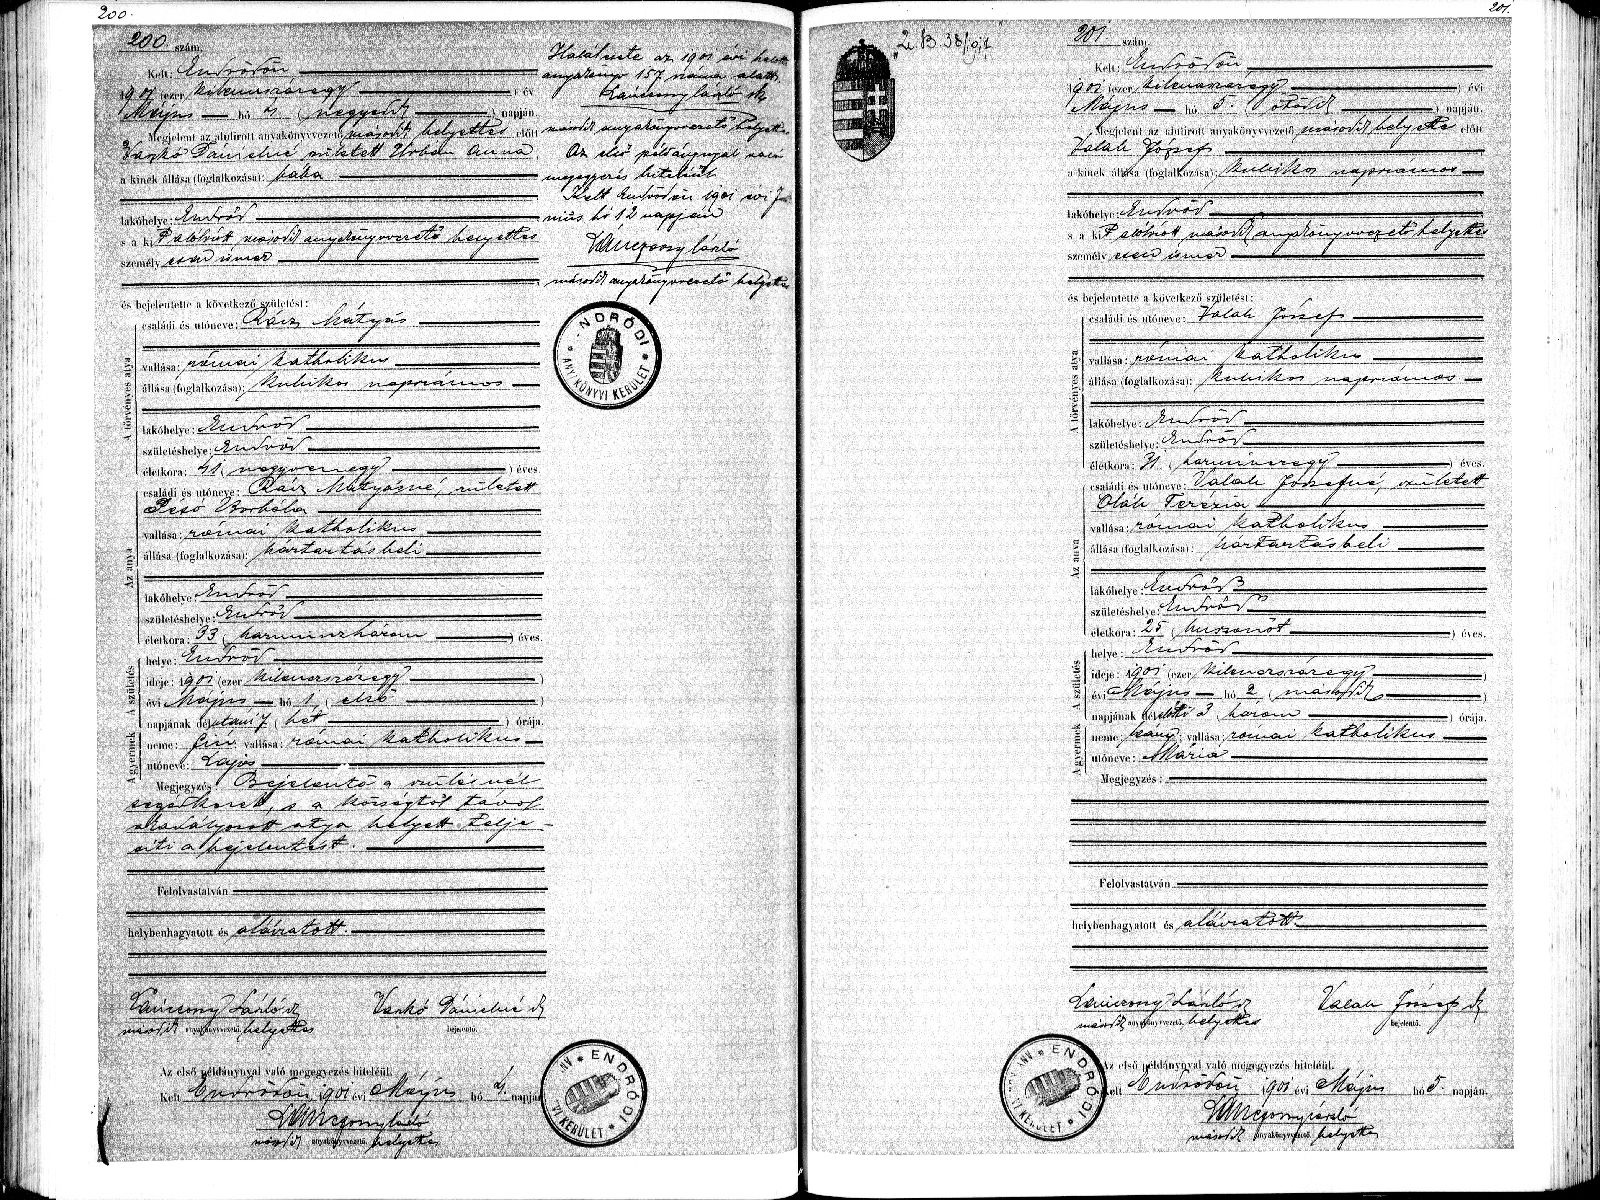 200.
200. szám.
Kelt: Endrődön
1901 (ezer kilencszázegy) év
Május hó 4. (negyedik) napján.
Megjelent az alulirott anyakönyvvezető második helyettes előtt
Varkó Dánielné született Urbán Anna
a kinek állása (foglalkozása): bába
lakóhelye: Endrőd
s a kit alólirott második anyakönyvvezető helyettes
személyesen ismer
és bejelentette a következő születést:
A törvényes atya
családi és utóneve: Rácz Mátyás
vallása: római katholikus
állása (foglalkozása): kubikos napszámos
lakóhelye: Endrőd
születéshelye: Endrőd
életkora: 41 (negyvenegy) éves.
Az anya
családi és utóneve: Rácz Mátyásné, született
Borbála
vallása: római katholikus
állása (foglalkozása): háztartásbeli
lakóhelye: Endrőd
születéshelye: Endrőd
életkora: 33 (harminczhárom) éves.
A születés
helye: Endrőd
ideje: 1901 (ezer kilencszázegy)
évi Május hó 1 (első)
napjának délutáni 7 (hét) órája.
A gyermek
neme: fiú vallása: római katholikus
utóneve: Lajos
Megjegyzés: Bejelentő a szülésnél
segédkezett, s a községtől távol
akadályozott atya helyett telje-
siti a bejelentést.
Felolvastatván
helybenhagyatott és aláiratott.
Lánczony László sk Varkó Dánielné sk
második anyakönyvvezető helyettes bejelentő.
Az első példánynyal való megegyezés hiteléül.
Kelt Endrődön 1901 évi Május hó 4. napján
Lánczony László
második anyakönyvvezető helyettes
Halálesete az 1901 évi halotti
anyakönyv 157 száma alatt.
Lánczony László sk
második anyakönyvvezető helyettes
Az első példánynyal való
megegyezés hiteléül
Kelt Endrődön 1901 évi Jú-
nius hó 12 napján
Lánczony László
második anyakönyvvezető helyettes
ENDRŐDI
ANYAKÖNYVI KERÜLET
ENDRŐDI
ANYAKÖNYVI KERÜLET
201.
201. szám.
Kelt: Endrődön
1901 (ezer kilencszázegy) évi
Május hó 5. (ötödik) napján.
Megjelent az alulirott anyakönyvvezető második helyettes előtt
Valah József
a kinek állása (foglalkozása): kubikos napszámos
lakóhelye: Endrőd
s a kit alólirott második anyakönyvvezető helyettes
személyesen ismer
és bejelentette a következő születést:
A törvényes atya
családi és utóneve: Valah József
vallása: római katholikus
állása (foglalkozása): kubikos napszámos
lakóhelye: Endrőd
születéshelye: Endrőd
életkora: 31 (harminczegy) éves.
Az anya
családi és utóneve: Valah Józsefné, született
Oláh Terézia
vallása: római katholikus
állása (foglalkozása): háztartásbeli
lakóhelye: Endrőd
születéshelye: Endrőd
életkora: 25 (huszonöt) éves.
A születés
helye: Endrőd
ideje: 1901 (ezer kilencszázegy)
évi Május hó 2 (második)
napjának délelőtti 3 (három) órája.
A gyermek
neme: leány; vallása: római katholikus
utóneve: Mária
Megjegyzés:
Felolvastatván
helybenhagyatott és aláiratott
Lánczony László sk Valah József sk
második anyakönyvvezető helyettes bejelentő.
Az első példánynyal való megegyezés hiteléül.
Kelt Endrődön 1901 évi Május hó 5. napján.
Lánczony László
második anyakönyvvezető helyettes
ENDRŐDI
ANYAKÖNYVI KERÜLET